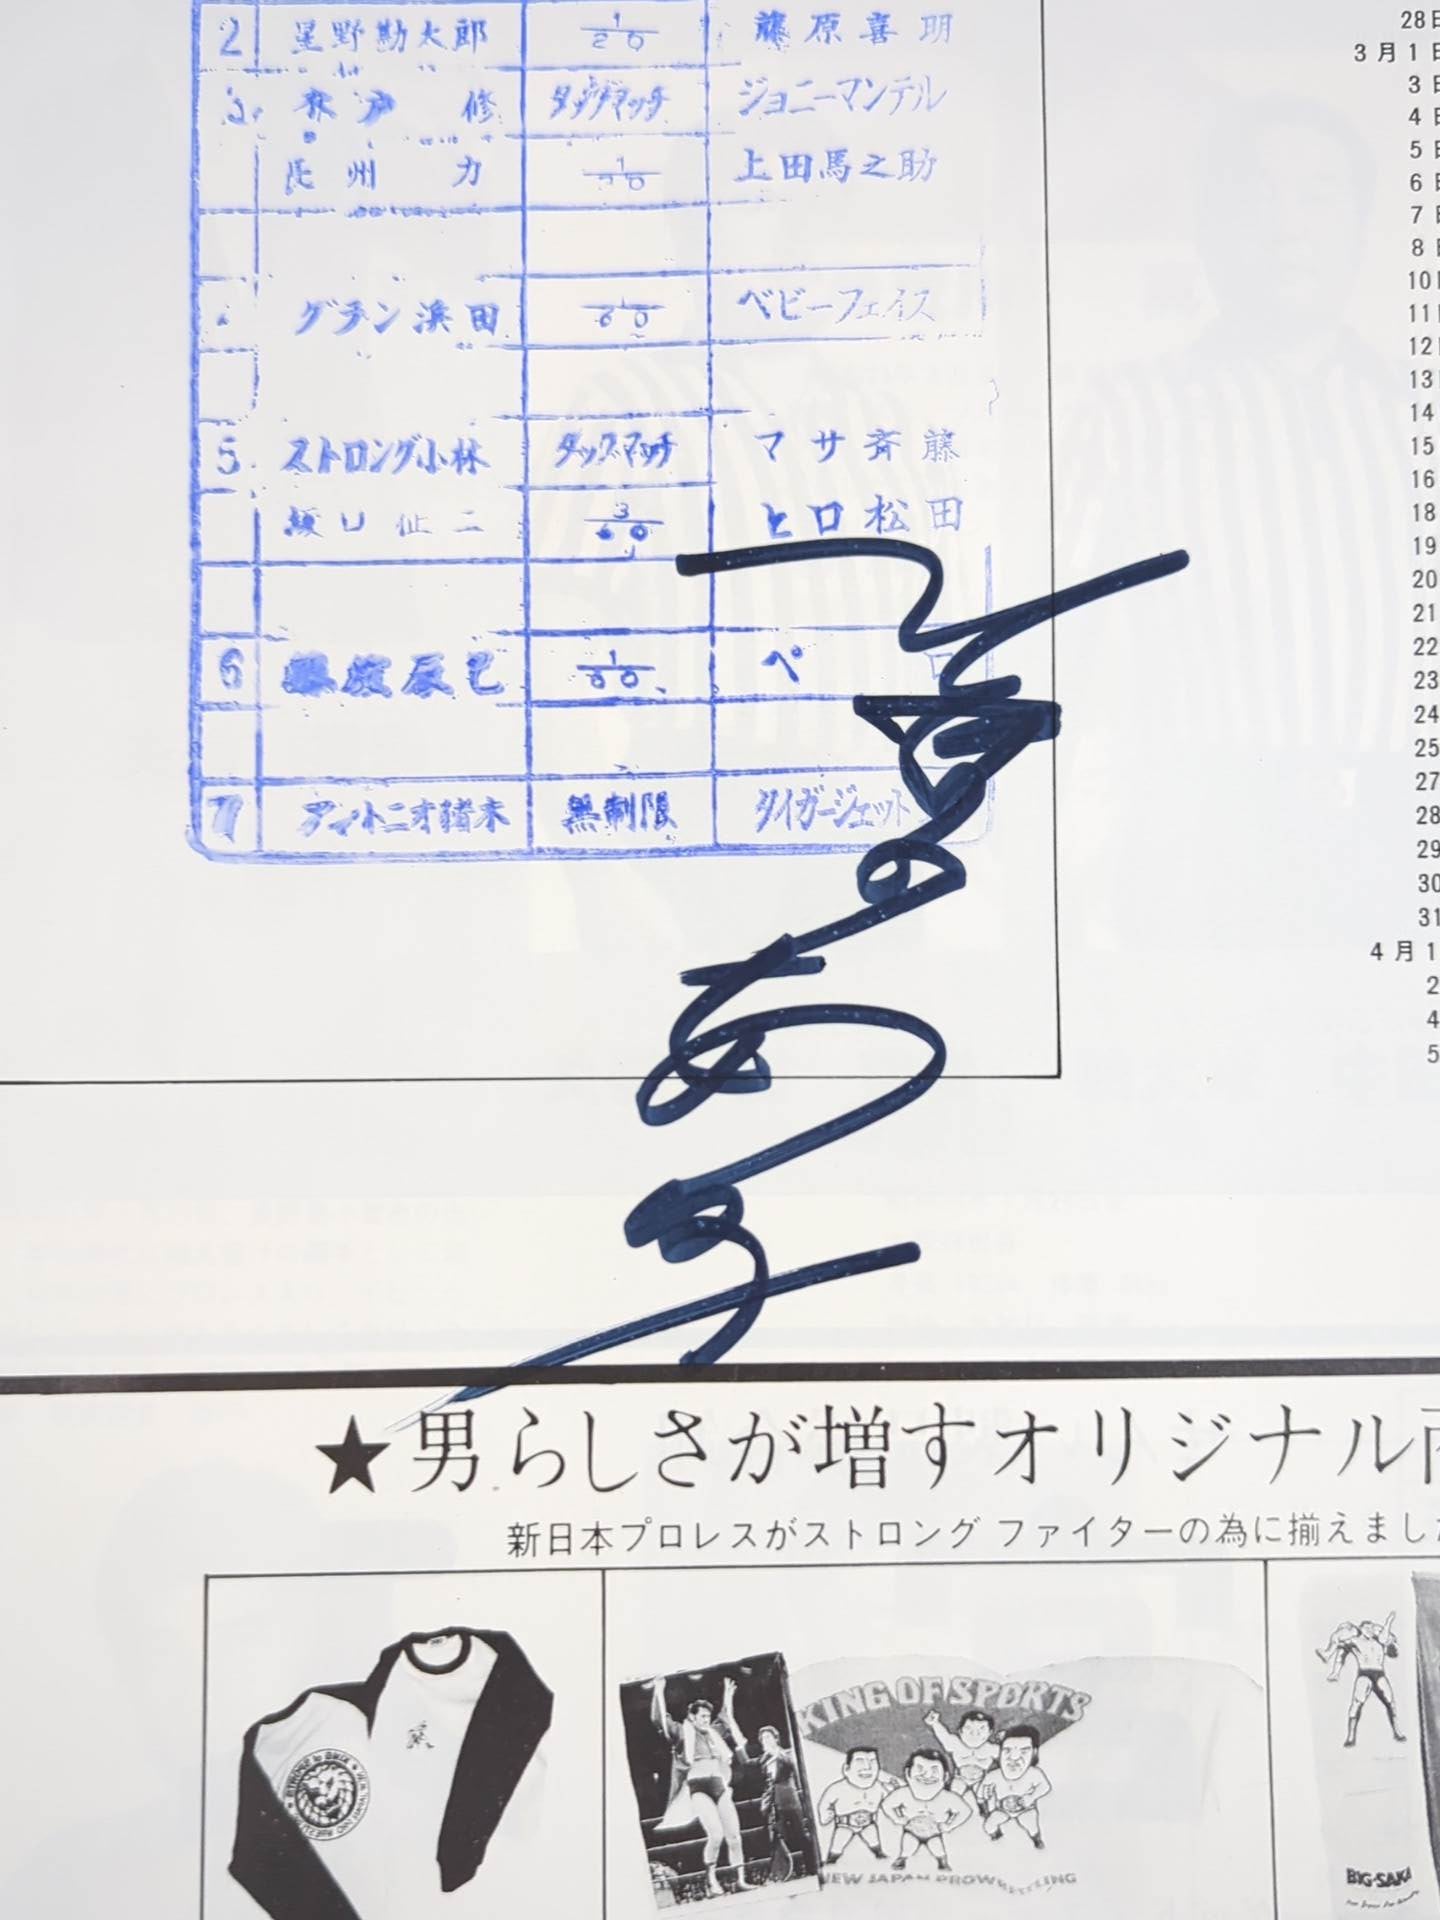 2 星野勘太郎 1/20 藤原喜明
3. 木戸 修 タッグマッチ ジョニーマンテル
長州 力 1/20 上田馬之助
グラン浜田 1/60 ベビーフェイス
5. ストロング小林 タッグマッチ マサ斉藤
坂口征二 3/60 ヒロ松田
6 藤波辰巳 ペ ロ
7 アントニオ猪木 無制限 タイガージェット
28日
3月1日
3日
4日
5日
6日
7日
8日
10日
11日
12日
13日
14
15
16
18
19
20
21
22
23
24
25
27
28
29
30
31
4月1
2
4
5
★男らしさが増すオリジナル商
新日本プロレスがストロングファイターの為に揃えました
KING OF SPORTS
NEW JAPAN PROWRESTLING
BIG-SAKA